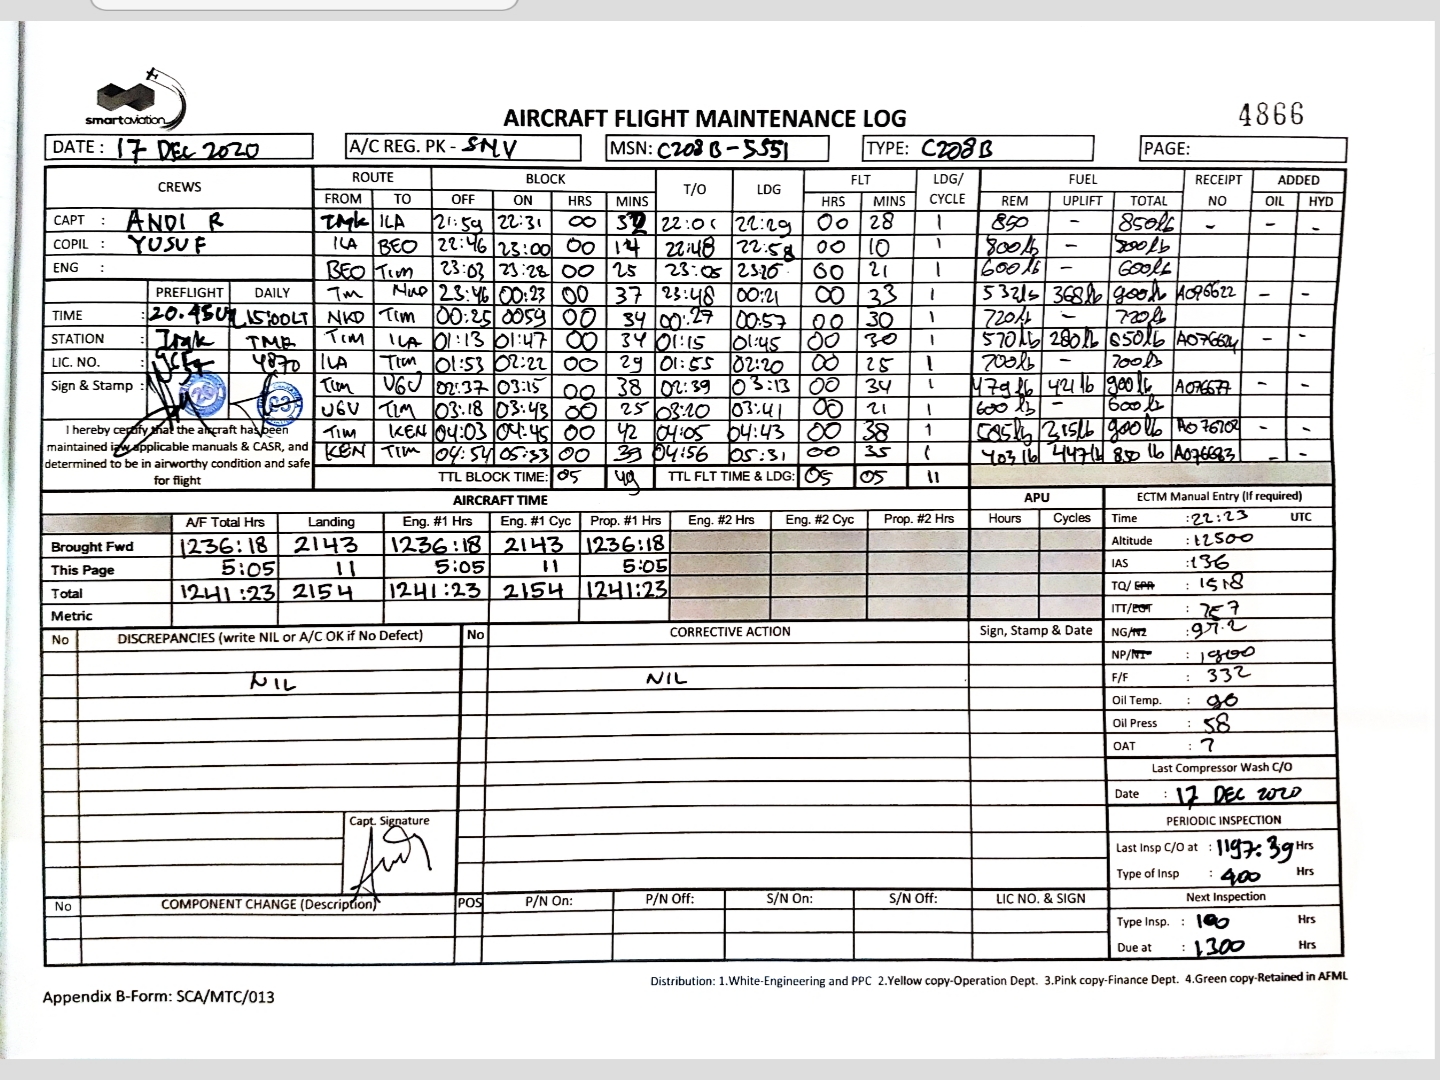 smartaviation
AIRCRAFT FLIGHT MAINTENANCE LOG
4866
DATE : 17 DEC 2020
A/C REG. PK - SNV
MSN: C208B-5551
TYPE: C208B
PAGE:
CREWS ROUTE BLOCK T/O LDG FLT LDG/ CYCLE FUEL RECEIPT NO ADDED
FROM TO OFF ON HRS MINS HRS MINS REM UPLIFT TOTAL OIL HYD
CAPT : ANDI R
COPIL : YUSUF
ENG :
ILA 21:59 22:31 00 32 22:01 22:29 00 28 1 850 - 850lb - - -
ILA BEO 22:46 23:00 00 14 22:48 22:58 00 10 1 800lb - 800lb
BEO Tim 23:03 23:28 00 25 23:05 23:26 00 21 1 600lb - 600lb
Tim NKD 23:46 00:23 00 37 23:48 00:21 00 33 1 532lb 368lb 900lb - -
NKD Tim 00:25 0059 00 34 00:27 00:57 00 30 1 720lb - 720lb
Tim ILA 01:13 01:47 00 34 01:15 01:45 00 30 1 570lb 280lb 850lb - -
ILA Tim 01:53 02:22 00 29 01:55 02:20 00 25 1 700lb - 700lb
Tim UGU 02:37 03:15 00 38 02:39 03:13 00 34 1 479lb 421lb 900lb A076677 - -
UGU Tim 03:18 03:43 00 25 03:20 03:41 00 21 1 600lb - 600lb
TIM KEN 04:03 04:45 00 42 04:05 04:43 00 38 1 585lb 315lb 900lb - -
KEN TIM 04:54 05:33 00 39 04:56 05:31 00 35 1 403lb 447lb 850 lb A076683 - -
TTL BLOCK TIME: 05 49 TTL FLT TIME & LDG: 05 05 11
PREFLIGHT DAILY
TIME : 20.45 15:00LT
STATION :
LIC. NO. : 4870
Sign & Stamp :
I hereby certify that the aircraft has been
maintained iaw applicable manuals & CASR, and
determined to be in airworthy condition and safe
for flight
AIRCRAFT TIME APU
A/F Total Hrs Landing Eng. #1 Hrs Eng. #1 Cyc Prop. #1 Hrs Eng. #2 Hrs Eng. #2 Cyc Prop. #2 Hrs Hours Cycles
Brought Fwd 1236:18 2143 1236:18 2143 1236:18
This Page 5:05 11 5:05 11 5:05
Total 1241:23 2154 1241:23 2154 1241:23
Metric
ECTM Manual Entry (If required)
Time : 22:23 UTC
Altitude : 12500
IAS : 136
TQ/ EPR : 1518
ITT/EGT : 757
NG/N2 : 97.2
NP/N1 : 1900
F/F : 332
Oil Temp. : 90
Oil Press : 58
OAT : 7
Last Compressor Wash C/O
Date : 17 DEC 2020
PERIODIC INSPECTION
Last Insp C/O at : 1197:39 Hrs
Type of Insp : 400 Hrs
Next Inspection
Type Insp. : 100 Hrs
Due at : 1300 Hrs
No DISCREPANCIES (write NIL or A/C OK if No Defect) No CORRECTIVE ACTION Sign, Stamp & Date
NIL NIL
Capt. Signature
No COMPONENT CHANGE (Description) POS P/N On: P/N Off: S/N On: S/N Off: LIC NO. & SIGN
Distribution: 1.White-Engineering and PPC 2.Yellow copy-Operation Dept. 3.Pink copy-Finance Dept. 4.Green copy-Retained in AFML
Appendix B-Form: SCA/MTC/013